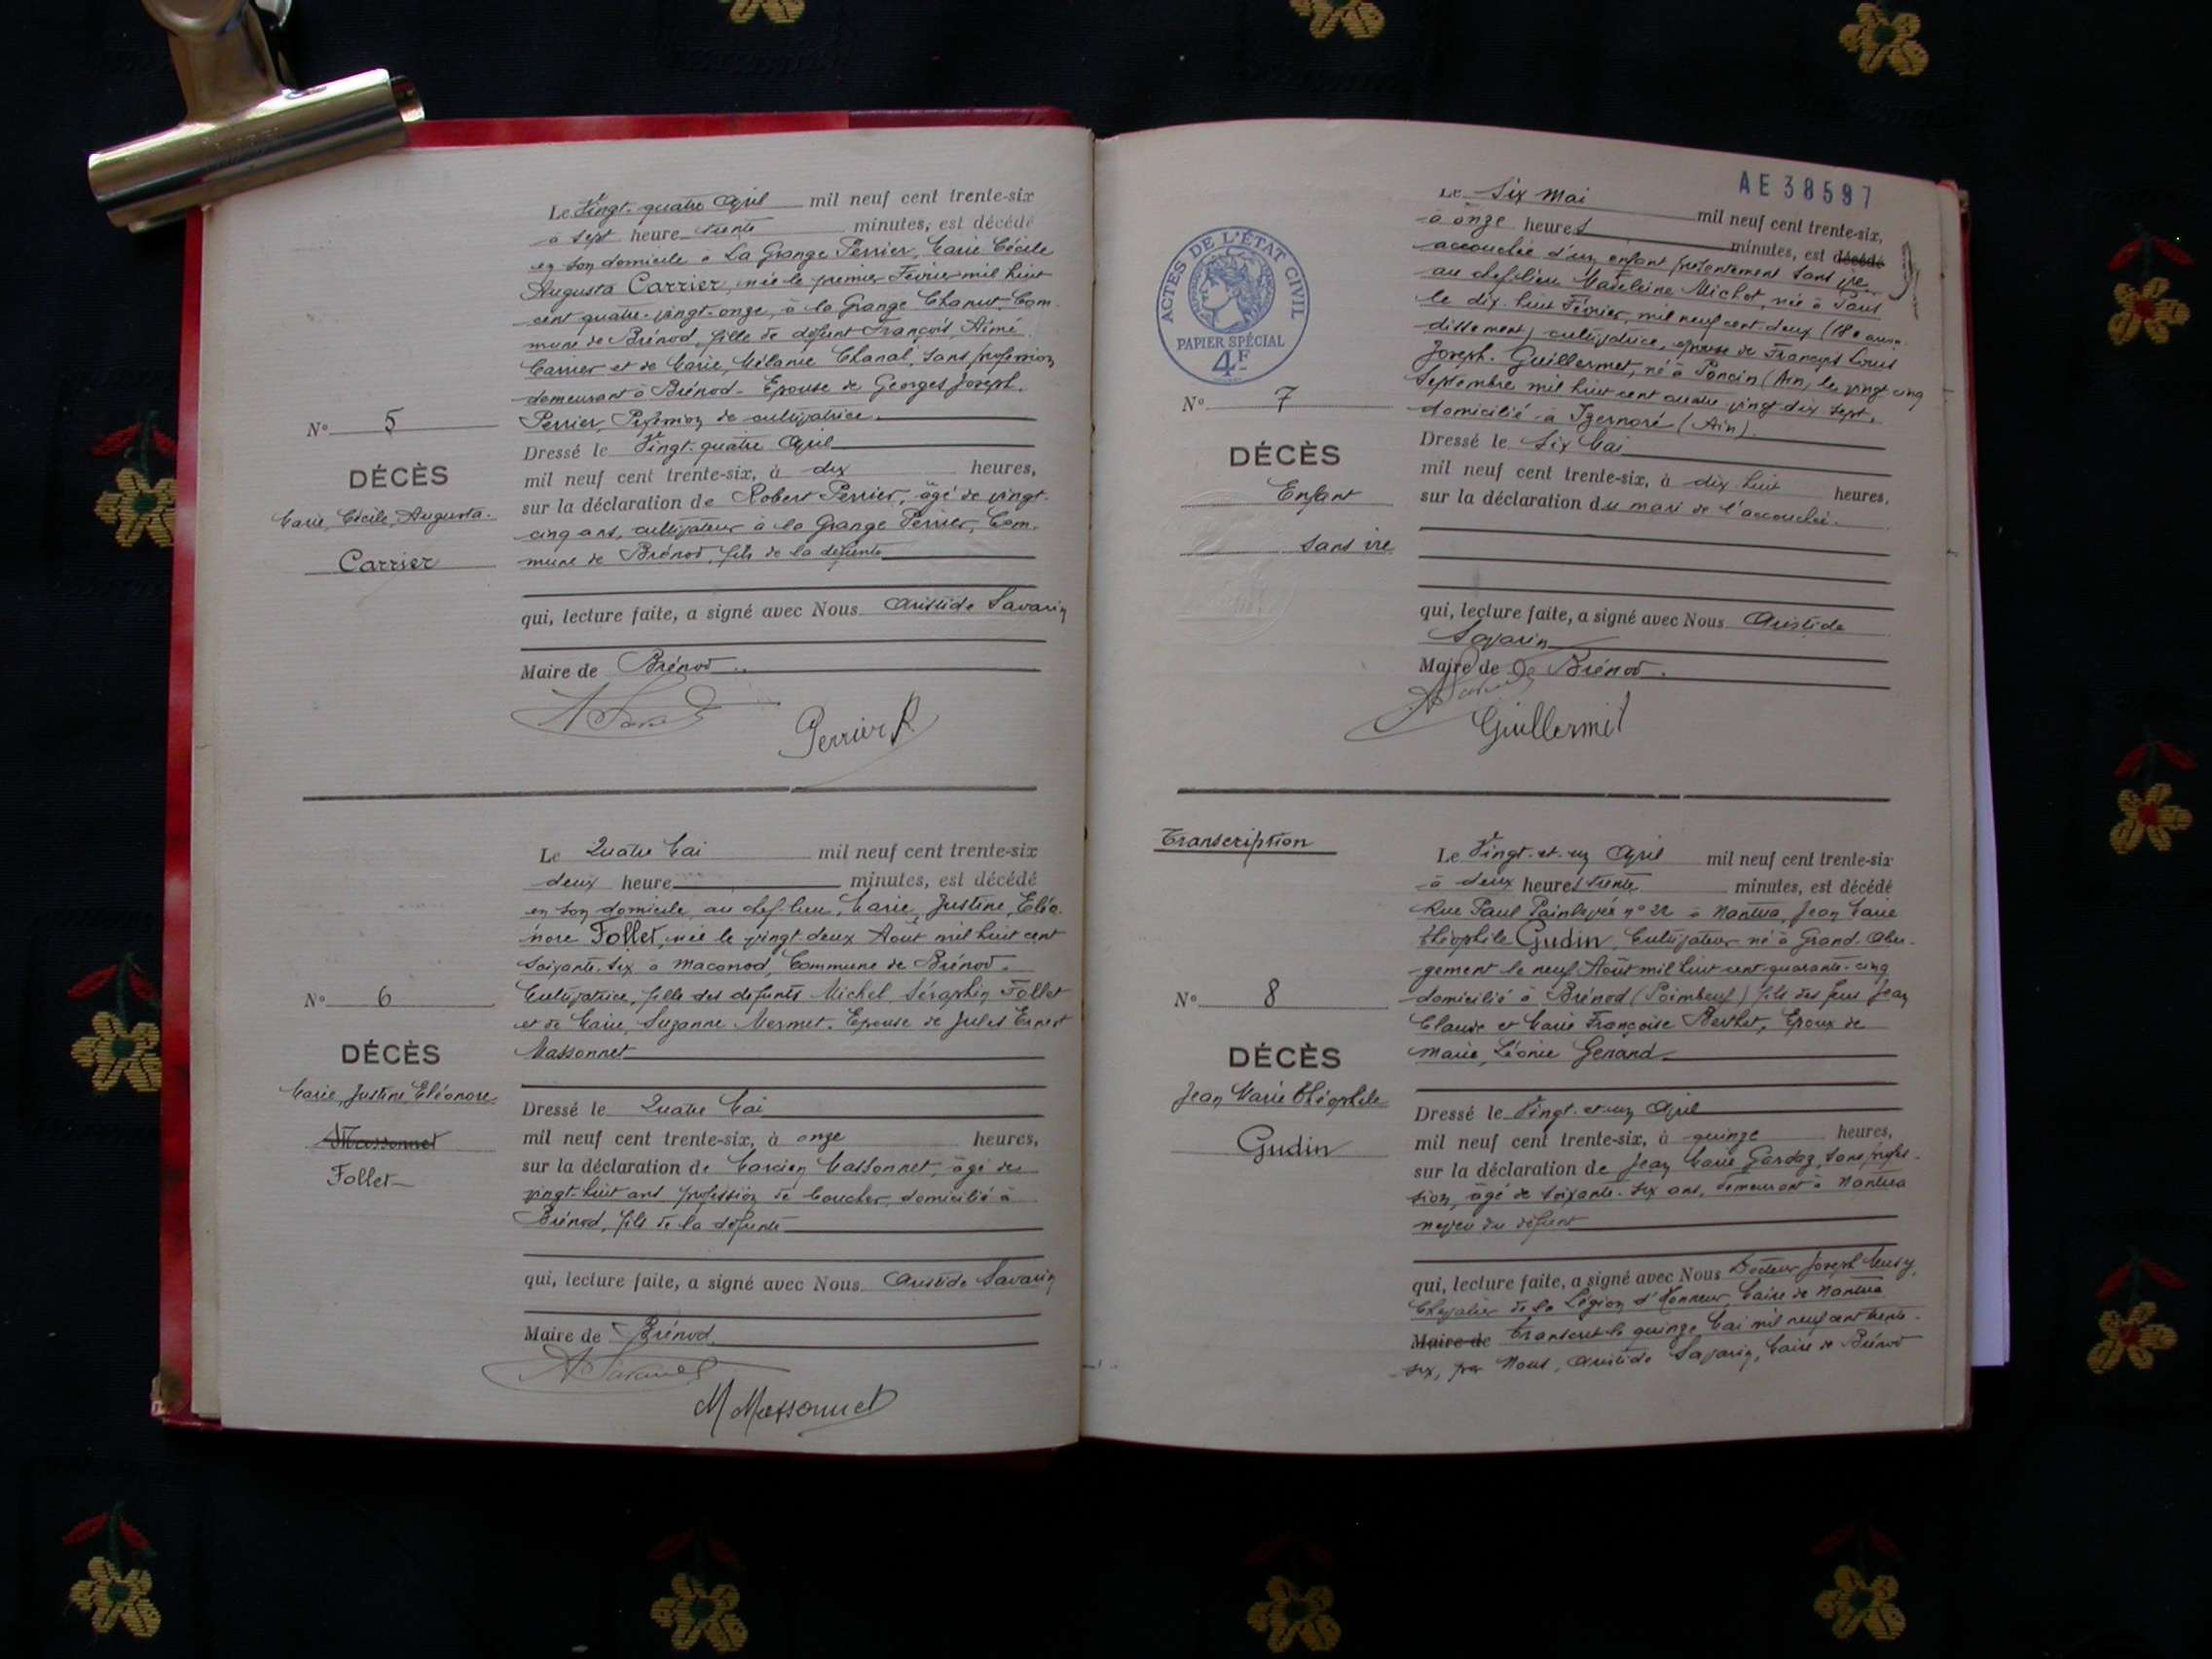 Le Vingt-quatre Avril mil neuf cent trente-six
à sept heure trente minutes, est décédé
en son domicile à La Grange Perrier, Marie Cécile
Augusta Carrier, née le premier Février mil huit
cent quatre-vingt-onze, à la Grange Chanut, Com-
mune de Brénod, fille de défunt François, Aimé
Carrier et de Marie, Mélanie Chanal, sans profession
demeurant à Brénod - Epouse de Georges Joseph
Perrier, Profession de cultivatrice.
N° 5
DÉCÈS
Marie, Cécile, Augusta.
Carrier
Dressé le Vingt-quatre Avril
mil neuf cent trente-six, à dix heures,
sur la déclaration de Robert Perrier, âgé de vingt-
cinq ans, cultivateur à la Grange Perrier, Com-
mune de Brénod, fils de la défunte
qui, lecture faite, a signé avec Nous Aristide Savarin
Maire de Brénod
Perrier R
Le Quatre Mai mil neuf cent trente-six
deux heure minutes, est décédé
en son domicile, au chef-lieu, Marie, Justine, Eléo-
nore Follet, née le vingt-deux Août mil huit cent
soixante-six à Maconod, Commune de Brénod.
Cultivatrice, fille des défunts Michel, Séraphin Follet
et de Marie, Suzanne Mermet. Epouse de Jules Ernest
Massonnet
N° 6
DÉCÈS
Marie, Justine, Eléonore
Massonnet
Follet
Dressé le Quatre Mai
mil neuf cent trente-six, à onze heures,
sur la déclaration de Marcien Massonnet, âgé de
vingt-huit ans profession de boucher, domicilié à
Brénod, fils de la défunte
qui, lecture faite, a signé avec Nous Aristide Savarin
Maire de Brénod
M Massonnet
AE 38597
ACTES DE L'ÉTAT CIVIL
PAPIER SPÉCIAL
4F
Le Six Mai mil neuf cent trente-six,
à onze heures minutes, est décédé
accouchée d'un enfant présentement sans vie
au chef-lieu Madeleine Michot, née à Paris
le dix-huit Février, mil neuf cent deux (18e arron-
dissement) cultivatrice, épouse de François Louis
Joseph Guillermet, né à Poncin (Ain) le vingt-cinq
Septembre mil huit cent quatre vingt dix sept,
domicilié à Izernore (Ain).
N° 7
DÉCÈS
Enfant
sans vie
Dressé le Six Mai
mil neuf cent trente-six, à dix-huit heures,
sur la déclaration du mari de l'accouchée.
qui, lecture faite, a signé avec Nous Aristide
Savarin
Maire de Brénod.
Guillermet
Transcription
Le Vingt-et-un Avril mil neuf cent trente-six
à deux heures trente minutes, est décédé
Rue Paul Painlevé n° 22 à Nantua, Jean Marie
Théophile Gudin, Cultivateur né à Grand-Aber-
gement le neuf Août mil huit cent quarante-cinq
domicilié à Brénod (Poimbœuf) fils des feus Jean
Claude et Marie Françoise Berthet, Epoux de
Marie, Léonie Genand
N° 8
DÉCÈS
Jean Marie Théophile
Gudin
Dressé le Vingt-et-un Avril
mil neuf cent trente-six, à quinze heures,
sur la déclaration de Jean Marie Gardaz, sans profes-
sion, âgé de soixante-six ans, demeurant à Nantua
neveu du défunt
qui, lecture faite, a signé avec Nous Docteur Joseph
Chevalier de la Légion d'Honneur, Maire de Nantua
Maire de Transcrit le quinze Mai mil neuf cent trente-
six, par Nous, Aristide Savarin, Maire de Brénod